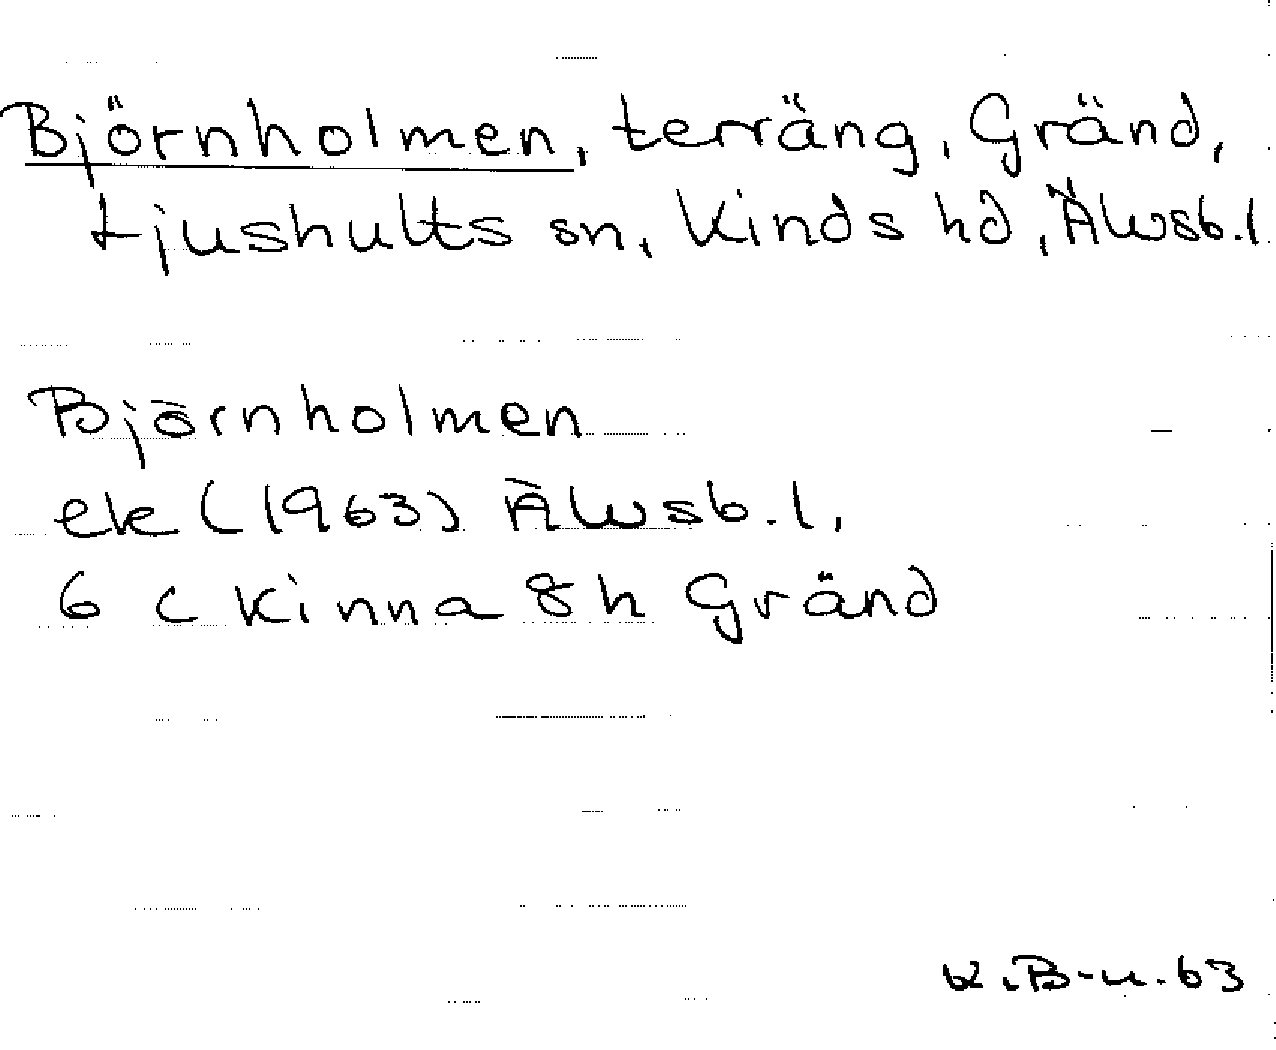 Björnholmen, terräng, Gränd,
Ljushults sn, Kinds hd, Älvsb.l
Björnholmen
ek (1963) Älvsb.l,
6 C Kinna 8h Gränd
K.B-n.63